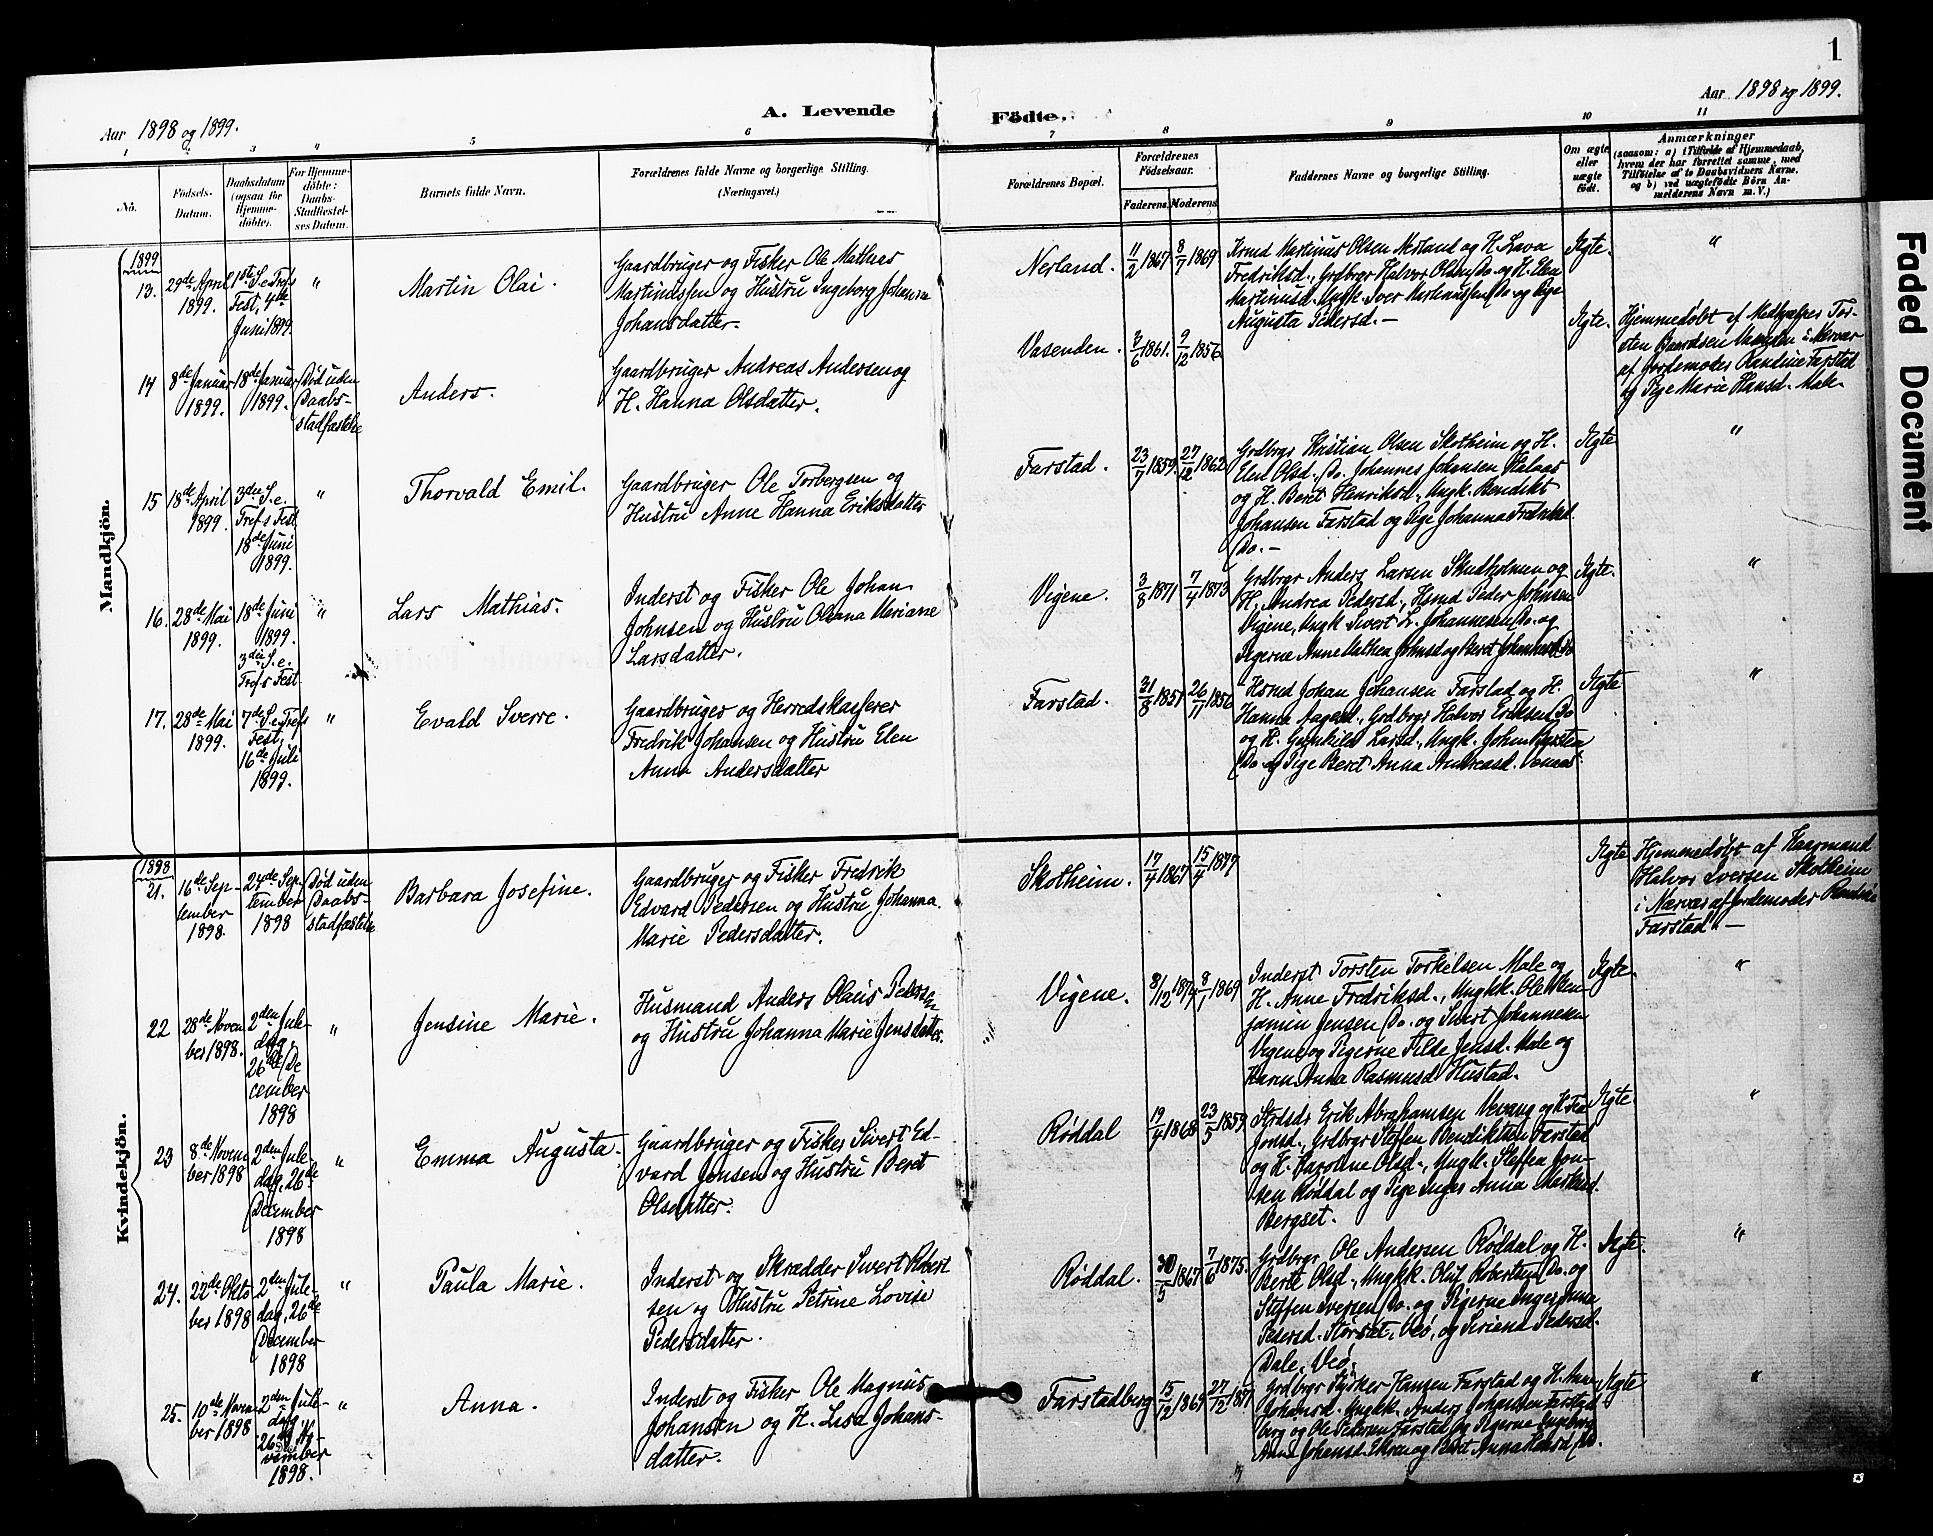 1
Aar 1898 og 1899.
A. Levende
Födte.
Aar 1898 og 1899.
1
3
4
5
6
7
8
9
10
11
No.
Födsels-
Datum.
Daabsdatum
(ogsaa for
Hjemme-
döbte).
For Hjemme-
döbte:
Daabs-
Stadfæstel-
ses Datum.
Barnets fulde Navn.
Forældrenes fulde Navne og borgerlige Stilling.
(Næringsvei.)
Forældrenes Bopæl.
Forældrenes
Födselsaar.
Faderens.
Moderens.
Faddernes Navne og borgerlige Stilling.
Om ægte
eller
uægte
födt.
Anmærkninger
(saasom: a) i Tilfælde af Hjemmedaab,
hvem der har forrettet samme, med
Tilföielse af to Daabsvidners Navne,
og b) ved uægtefödte Börn An-
melderens Navn m. V.)
Mandkjön.
1899
13.
29de April
1899.
1st S. e. Tref.s
Fest, 4de
Juni 1899.
"
Martin Olai.
Gaardbruger og Fisker Ole Mathias
Martinussen og Hustru Ingeborg Johanna
Johansdatter.
Nerland.
11/2 1867
8/7 1869
Martinus Olsen Nerland og H. Lava
Fredriksd., Grdbrgr Halvor Olsen Do. og H. Elen
Martinusd. Ungk. Iver Martinussen Do. og Pige
Augusta Pedersd. —
Ægte.
"
14
8de Januar
1899.
18de Januar
1899.
Död uden
Daabs-
stadfæstelse
Anders.
Gaardbruger Andreas Andersen og
H. Hanna Olsdatter.
Vasenden.
3/6 1861.
9/12 1856
Ægte.
Hjemmedöbt af Medhjælper Tor-
sten Baardsen i Nærvær
af Jordemoder Randine Farstad
og Pige Marie Hansd. Male-
15
18de April
1899.
3die S. e.
Tref.s Fest
18de Juni
1899.
"
Thorvald Emil.
Gaardbruger Ole Torbergsen og
Hustru Anne Hanna Eriksdatter
Farstad.
23/7 1859.
27/12 1862
Grdbrgr Kristian Olsen Skotheim og H.
Elen Olsd. Do. Johannes Johansen
og H. Beret Henriksd., Ungk. Bendikt
Johansen Farstad og Pige Johanna Fredriksd.
Do. —
Ægte
"
16.
28de Mai
1899.
18de Juni
1899.
3die S. e.
Tref.s Fest
"
Lars Mathias.
Inderst og Fisker Ole Johan
Johnsen og Hustru Oleanna Mariane
Larsdatter.
Vigene.
3/8 1871
7/4 1873
Grdbrgr Anders Larsen Skudholmen og
H. Andrea Pedersd., Peder Johnsen
Vigene, Ungk Sivert L. Johannesen Do. og
Pigerne Anne Mathea Johnsd og Beret Johannesd. Do
Ægte.
"
17.
28de Mai
1899.
7de S. e. Tref.s
Fest,
16de Juli
1899.
"
Evald Sverre.
Gaardbruger og Herredskasserer
Fredrik Johansen og Hustru Elen
Anna Andersdatter
Farstad.
31/8 1857
26/11 1856
Johan Johansen Farstad og H.
Hanna Aagesd., Grdbrgr Halvor Eriksen Do
og H. Gunhild Larsd., Ungk. Johan
Do og Pige Beret Anna Andreasd.
Ægte
"
Kvindekjön.
1898
21.
16de Sep-
tember
1898.
24de Sep-
tember
1898
Död uden
Daabs-
stadfæstelse
Barbara Josefine.
Gaardbruger og Fisker Fredrik
Edvard Pedersen og Hustru Johanna
Marie Pedersdatter.
Skotheim.
17/4 1867
15/4 1877
Ægte
Hjemmedöbt af Kaarmand
Halvor Iversen Skotheim
i Nærvær af Jordemoder Randine
Farstad. —
22
28de Novem
ber 1898.
2den Jule-
dag,
26de De
cember
1898
"
Jensine Marie.
Husmand Anders Olaus Pedersen
og Hustru Johanna Marie Jensdatter.
Vigene.
8/12 1874
8/7 1869
Inderst Torsten Torkelsen Male og
H. Anne Fredriksd., Ungkk. Ole Ben-
jamin Jensen Do. og Sivert Johannesen
Vigene og Pigerne Tilde Jensd. Male og
Karen Anna Rasmusd. Hustad.
Ægte.
"
23
8de Novem
ber 1898
2den Jule-
dag, 26de
December
1898
"
Emma Augusta.
Gaardbruger og Fisker Sivert Ed-
vard Jensen og Hustru Beret
Olsdatter.
Røddal
19/4 1868
23/5 1859.
Erik Abrahamsen Vevang og H.
Jonsd., Grdbrgr Steffen Bendiktsen Farstad
og H. Karoline Olsd., Ungk. Steffen Jen-
sen Røddal og Pige Inger Anna
Bergset.
Ægte.
"
24.
22de Okto
ber 1898
2den Jule-
dag, 26de
December
1898
"
Paula Marie.
Inderst og Skrædder Sivert Robert
sen og Hustru Petrine Lovise
Pedersdatter.
Røddal.
30/5 1867
7/6 1875.
Grdbrgr. Ole Andersen Røddal og H.
Berit Olsd., Ungkk. Oluf Robertsen Do. og
Steffen Iversen Do. og Pigerne Inger Anna
Pedersd. Störset, Veö, og Seriena Pedersd.
Dale, Veö.
Ægte.
"
25.
10de Novem
ber 1898
2den Jule-
dag
26de
vember
1898.
"
Anna.
Inderst og Fisker Ole Magnus
Johansen og H. Lisa Johans-
datter.
Farstadberg
15/12 1869
27/12 1871
Grdbrgr Hansen Farstad og H. Ane
Johansd. Ungkk. Anders Johansen Farstad-
berg og Ole Pedersen Farstad og Pigerne Ingeborg
Anna Johansd. og Beret Anna Do.
Ægte
"
Faded Document